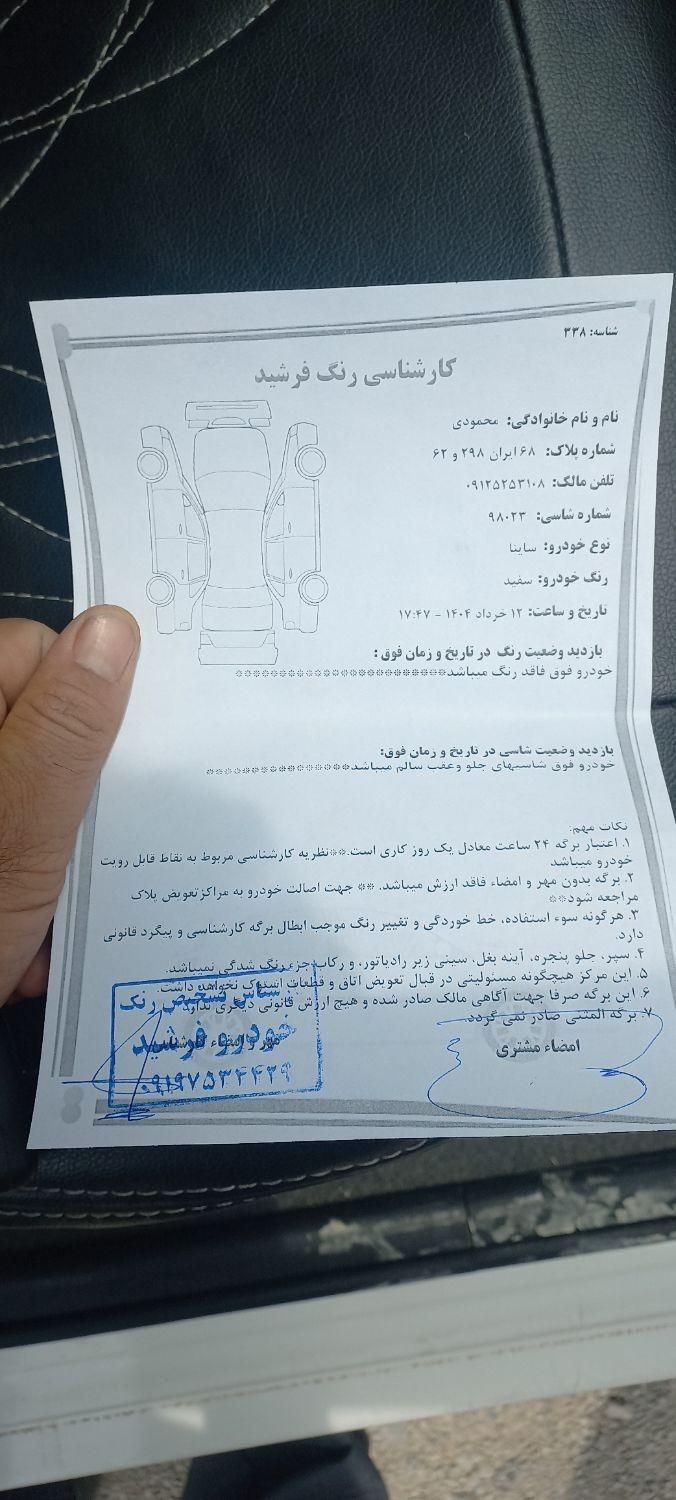 شناسه: ۳۳۸
کارشناسی رنگ فرشید
نام و نام خانوادگی: محمودی
شماره پلاک: ۶۸ ایران ۲۹۸ و ۶۲
تلفن مالک: ۰۹۱۲۵۲۵۳۱۰۸
شماره شاسی: ۹۸۰۲۳
نوع خودرو: ساینا
رنگ خودرو: سفید
تاریخ و ساعت: ۱۲ خرداد ۱۴۰۴ - ۱۷:۴۷
بازدید وضعیت رنگ در تاریخ و زمان فوق :
خودرو فوق فاقد رنگ میباشد************************
بازدید وضعیت شاسی در تاریخ و زمان فوق:
خودرو فوق شاسیهای جلو وعقب سالم میباشد****************
نکات مهم:
۱. اعتبار برگه ۲۴ ساعت معادل یک روز کاری است.**نظریه کارشناسی مربوط به نقاط قابل رویت
خودرو میباشد
۲. برگه بدون مهر و امضاء فاقد ارزش میباشد. ** جهت اصالت خودرو به مراکز تعویض پلاک
مراجعه شود**
۳. هرگونه سوء استفاده، خط خوردگی و تغییر رنگ موجب ابطال برگه کارشناسی و پیگرد قانونی
دارد.
۴. سپر، جلو پنجره، آینه بغل، سینی زیر رادیاتور، و رکاب جزء رنگ شدگی نمیباشد.
۵. این مرکز هیچگونه مسئولیتی در قبال تعویض اتاق و قطعات استوک نخواهد داشت.
۶. این برگه صرفا جهت آگاهی مالک صادر شده و هیچ ارزش قانونی دیگری ندارد.
۷. برگه المثنی صادر نمی گردد.
امضاء مشتری
مهر و امضاء کارشناس
تشخیص رنگ
خودرو فرشید
۰۹۱۹۷۵۳۴۴۲۹